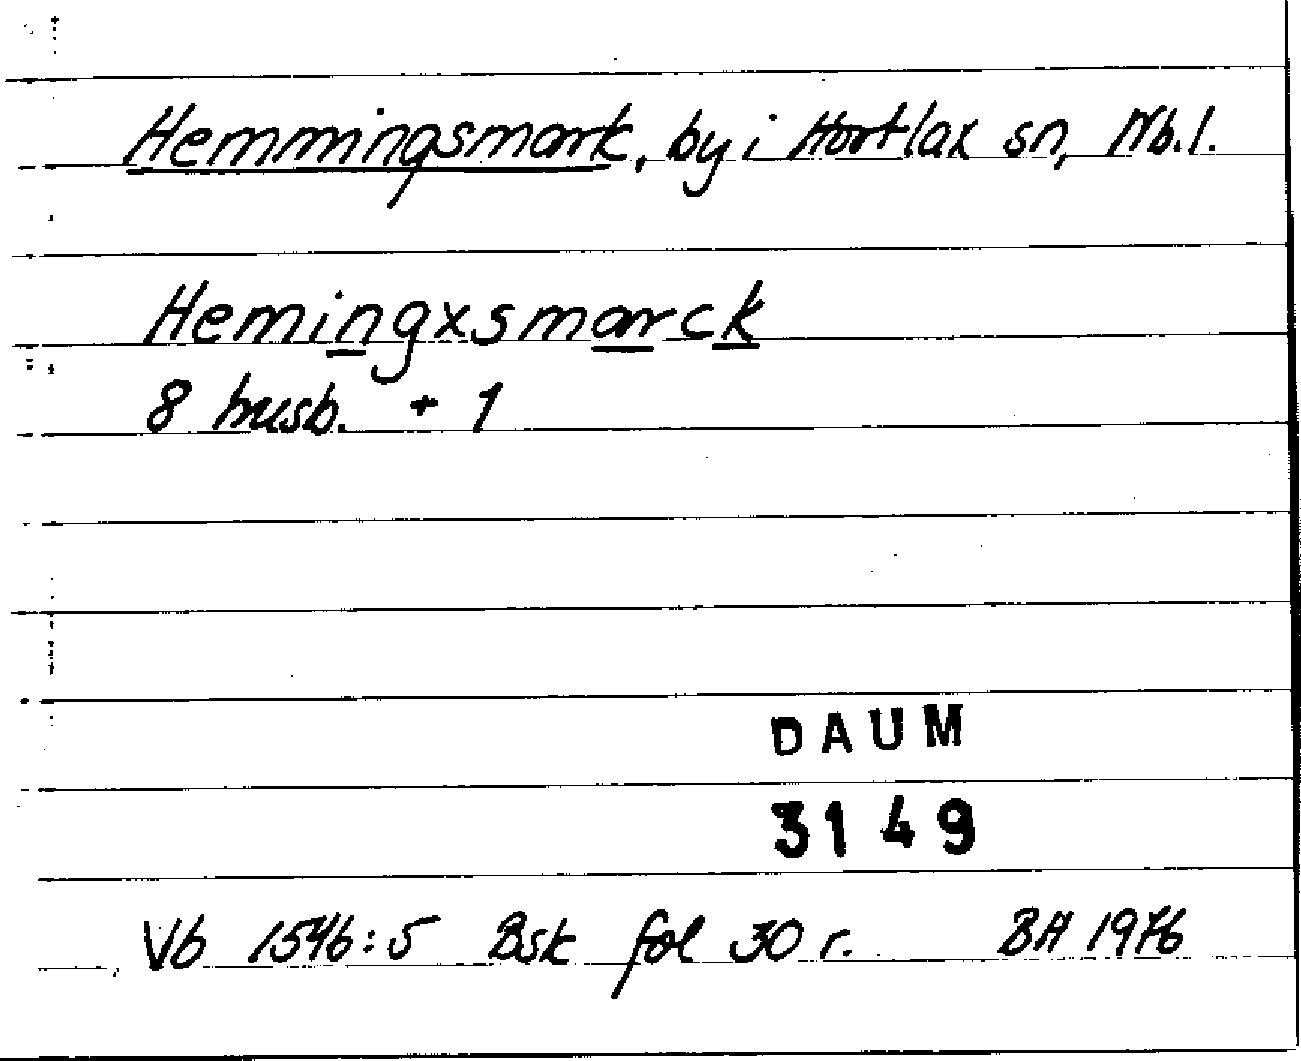 Hemmingsmark, by i Hortlax sn, Nb.l.
Hemingxsmarck
8 husb. + 1
DAUM
3149
Vb 1546:5 Bsk fol 30 r. BH 1976